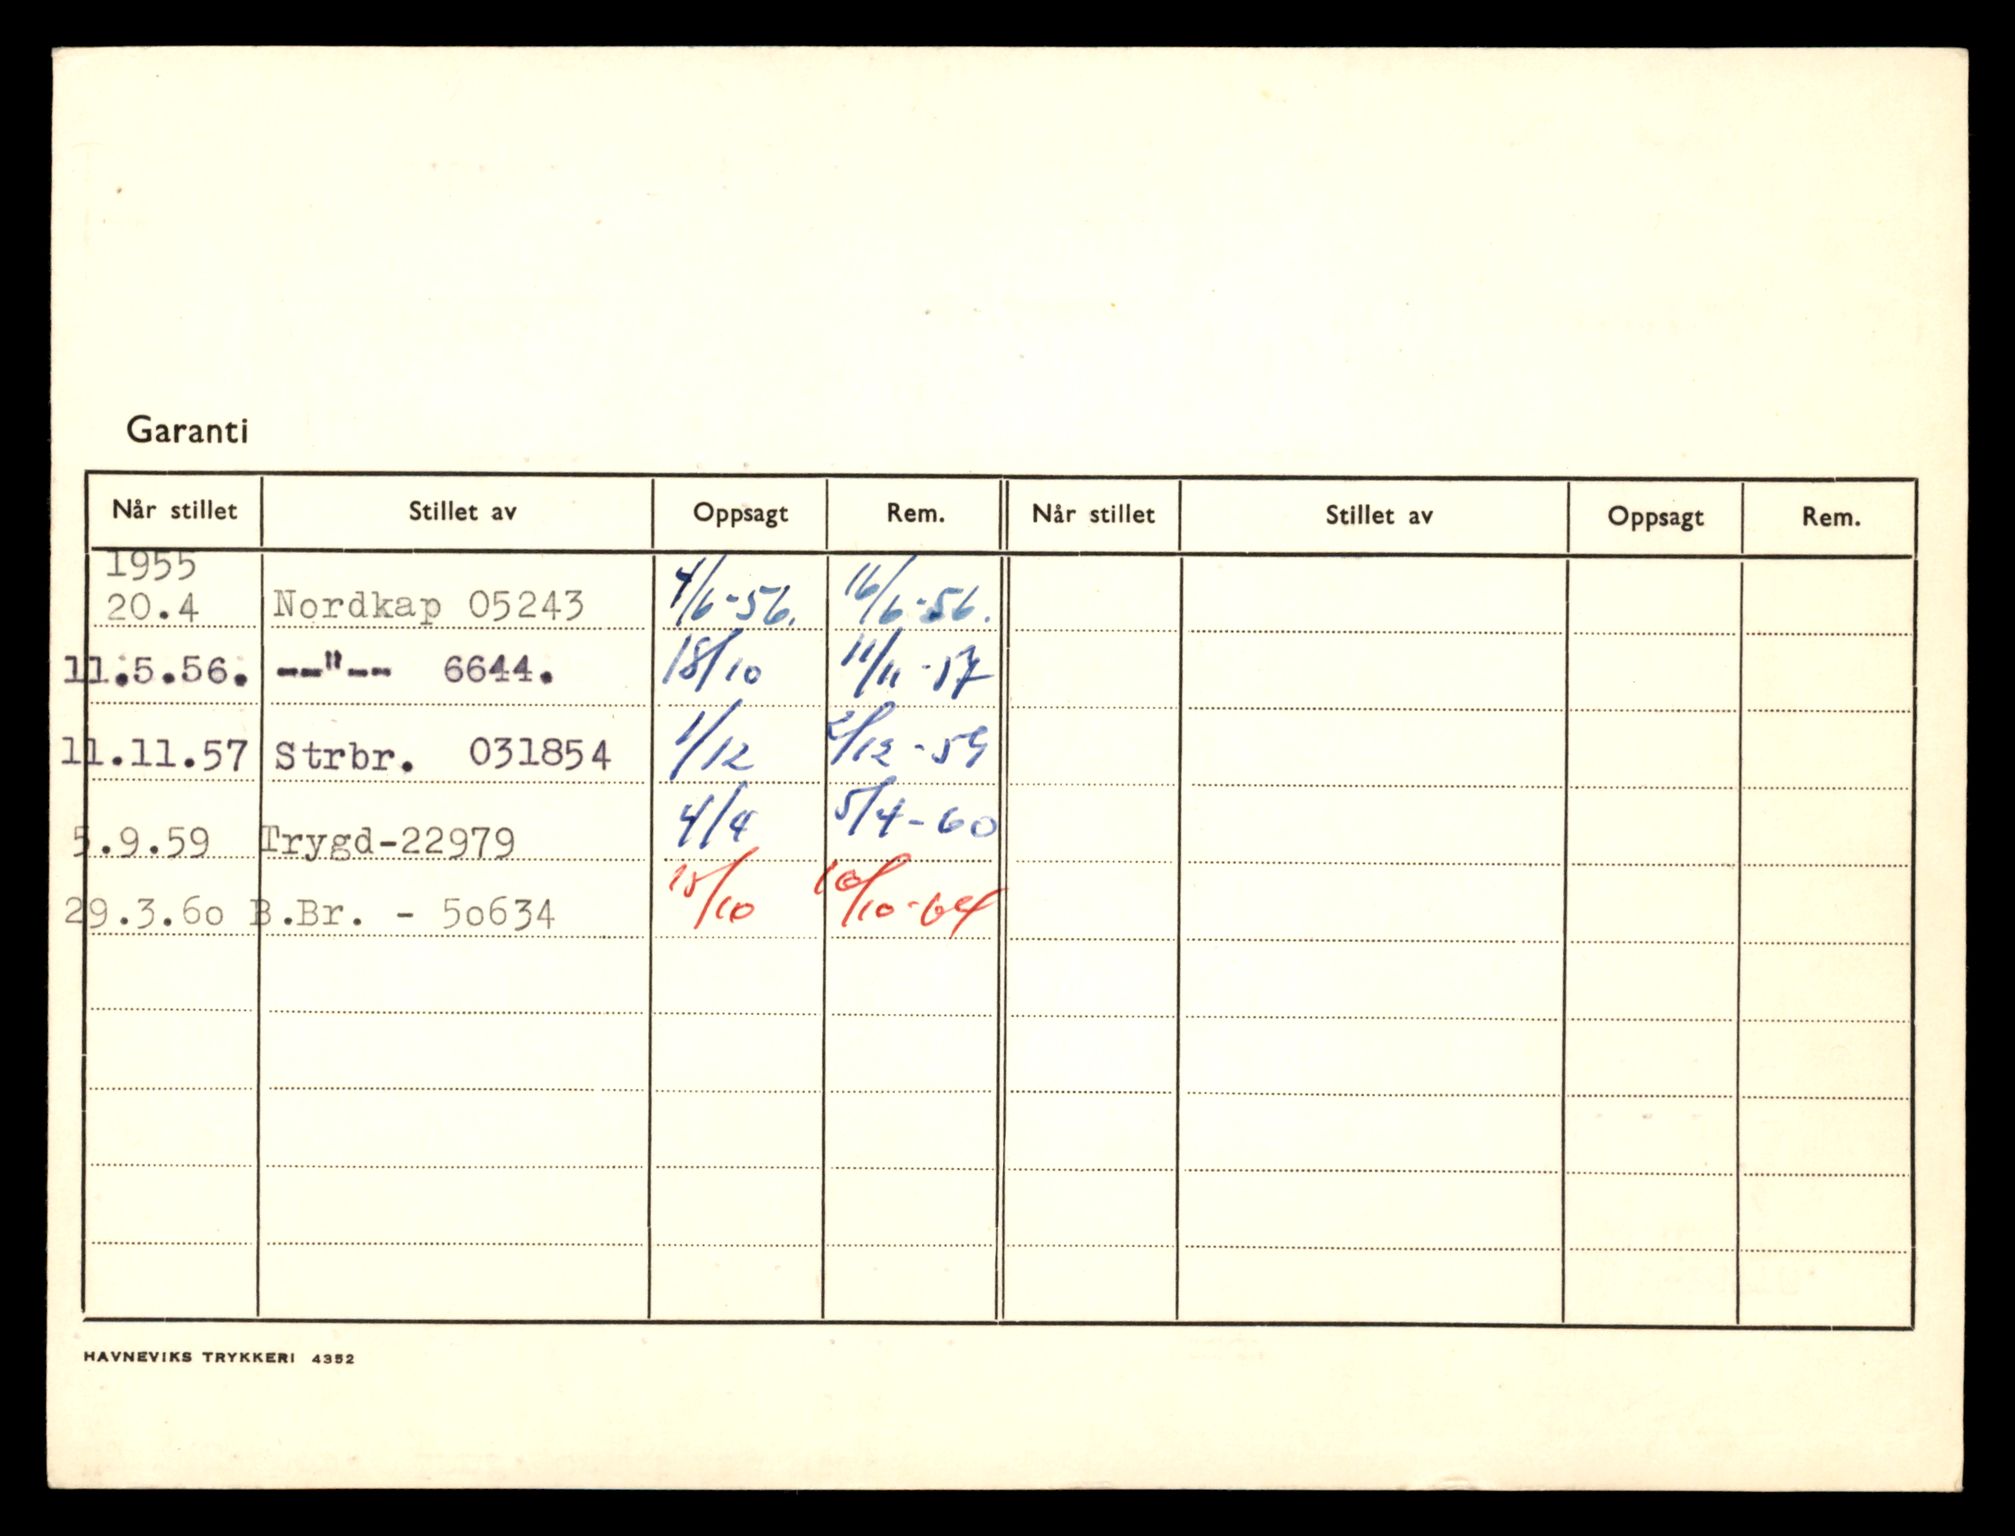 Garanti
Når stillet Stillet av Oppsagt Rem. Når stillet Stillet av Oppsagt Rem.
1955
20.4 Nordkap 05243 4/6-56. 16/6-56.
11.5.56. --"-- 6644. 18/10 11/11-57
11.11.57 Strbr. 031854 1/12 2/12-59
5.9.59 Trygd-22979 4/4 5/4-60
29.3.60 B.Br. - 50634 15/10 /10-64
HAVNEVIKS TRYKKERI 4352